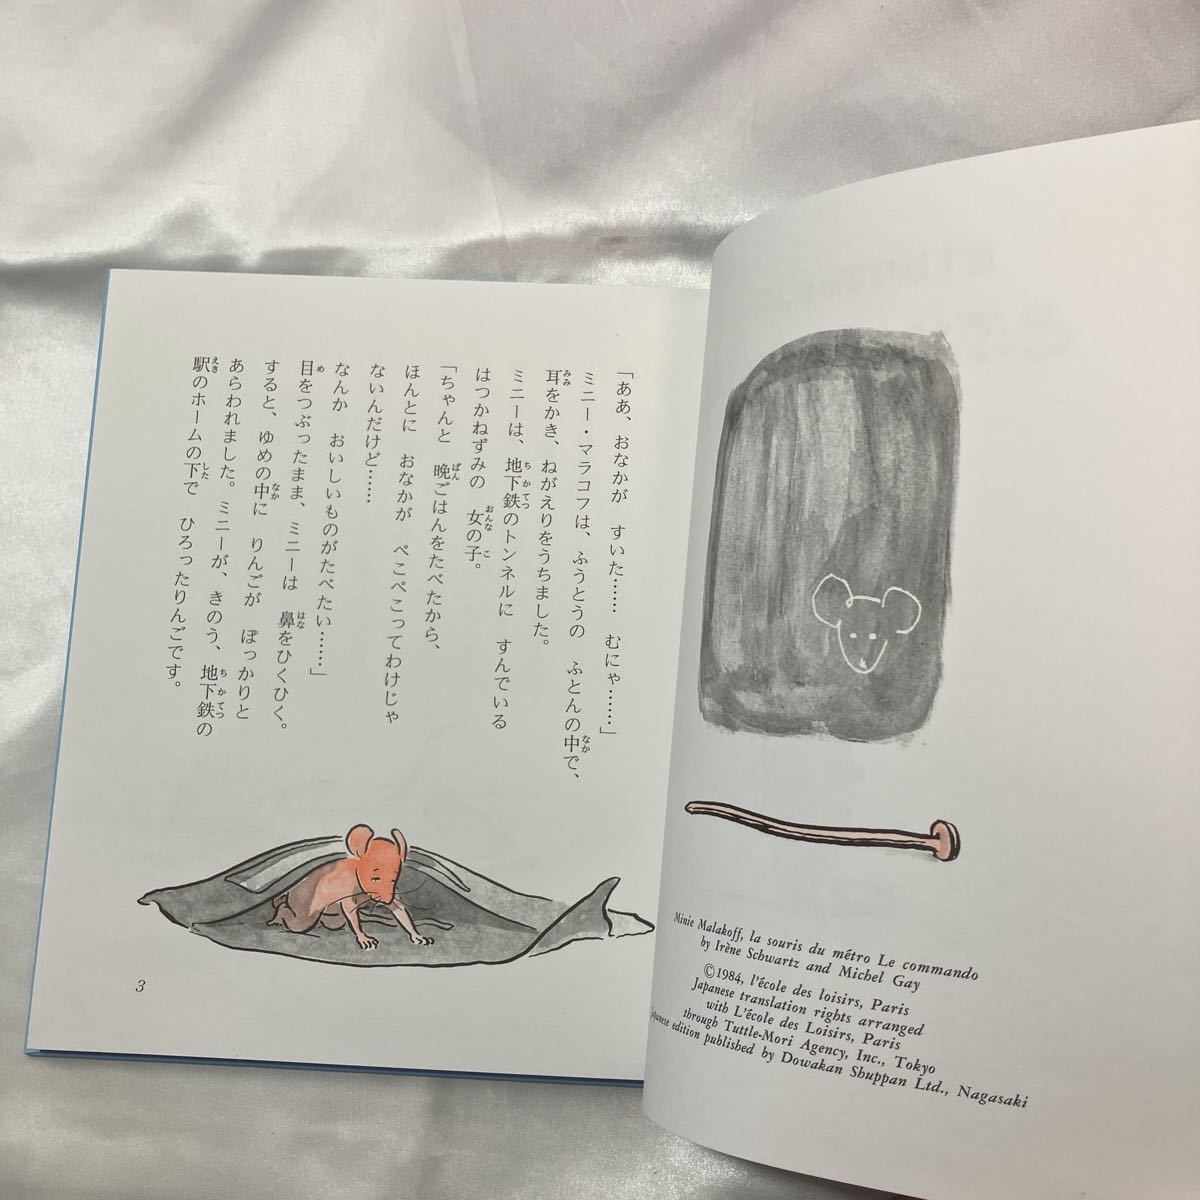 「ああ、おなかが　すいた……　むにゃ……」
ミニー・マラコフは、ふうとうの　ふとんの中で、
耳をかき、ねがえりをうちました。
ミニーは、地下鉄のトンネルに　すんでいる
はつかねずみの　女の子。
「ちゃんと　晩ごはんをたべたから、
ほんとに　おなかが　ぺこぺこってわけじゃ
ないんだけど……
なんか　おいしいものがたべたい……」
目をつぶったまま、ミニーは　鼻をひくひく。
すると、ゆめの中に　りんごが　ぽっかりと
あらわれました。ミニーが、きのう、地下鉄の
駅のホームの下で　ひろったりんごです。
3
Minie Malakoff, la souris du métro Le commando
by Irène Schwartz and Michel Gay
©1984, l'école des loisirs, Paris
Japanese translation rights arranged
with L'école des Loisirs, Paris
through Tuttle-Mori Agency, Inc., Tokyo
Japanese edition published by Dowakan Shuppan Ltd., Nagasaki